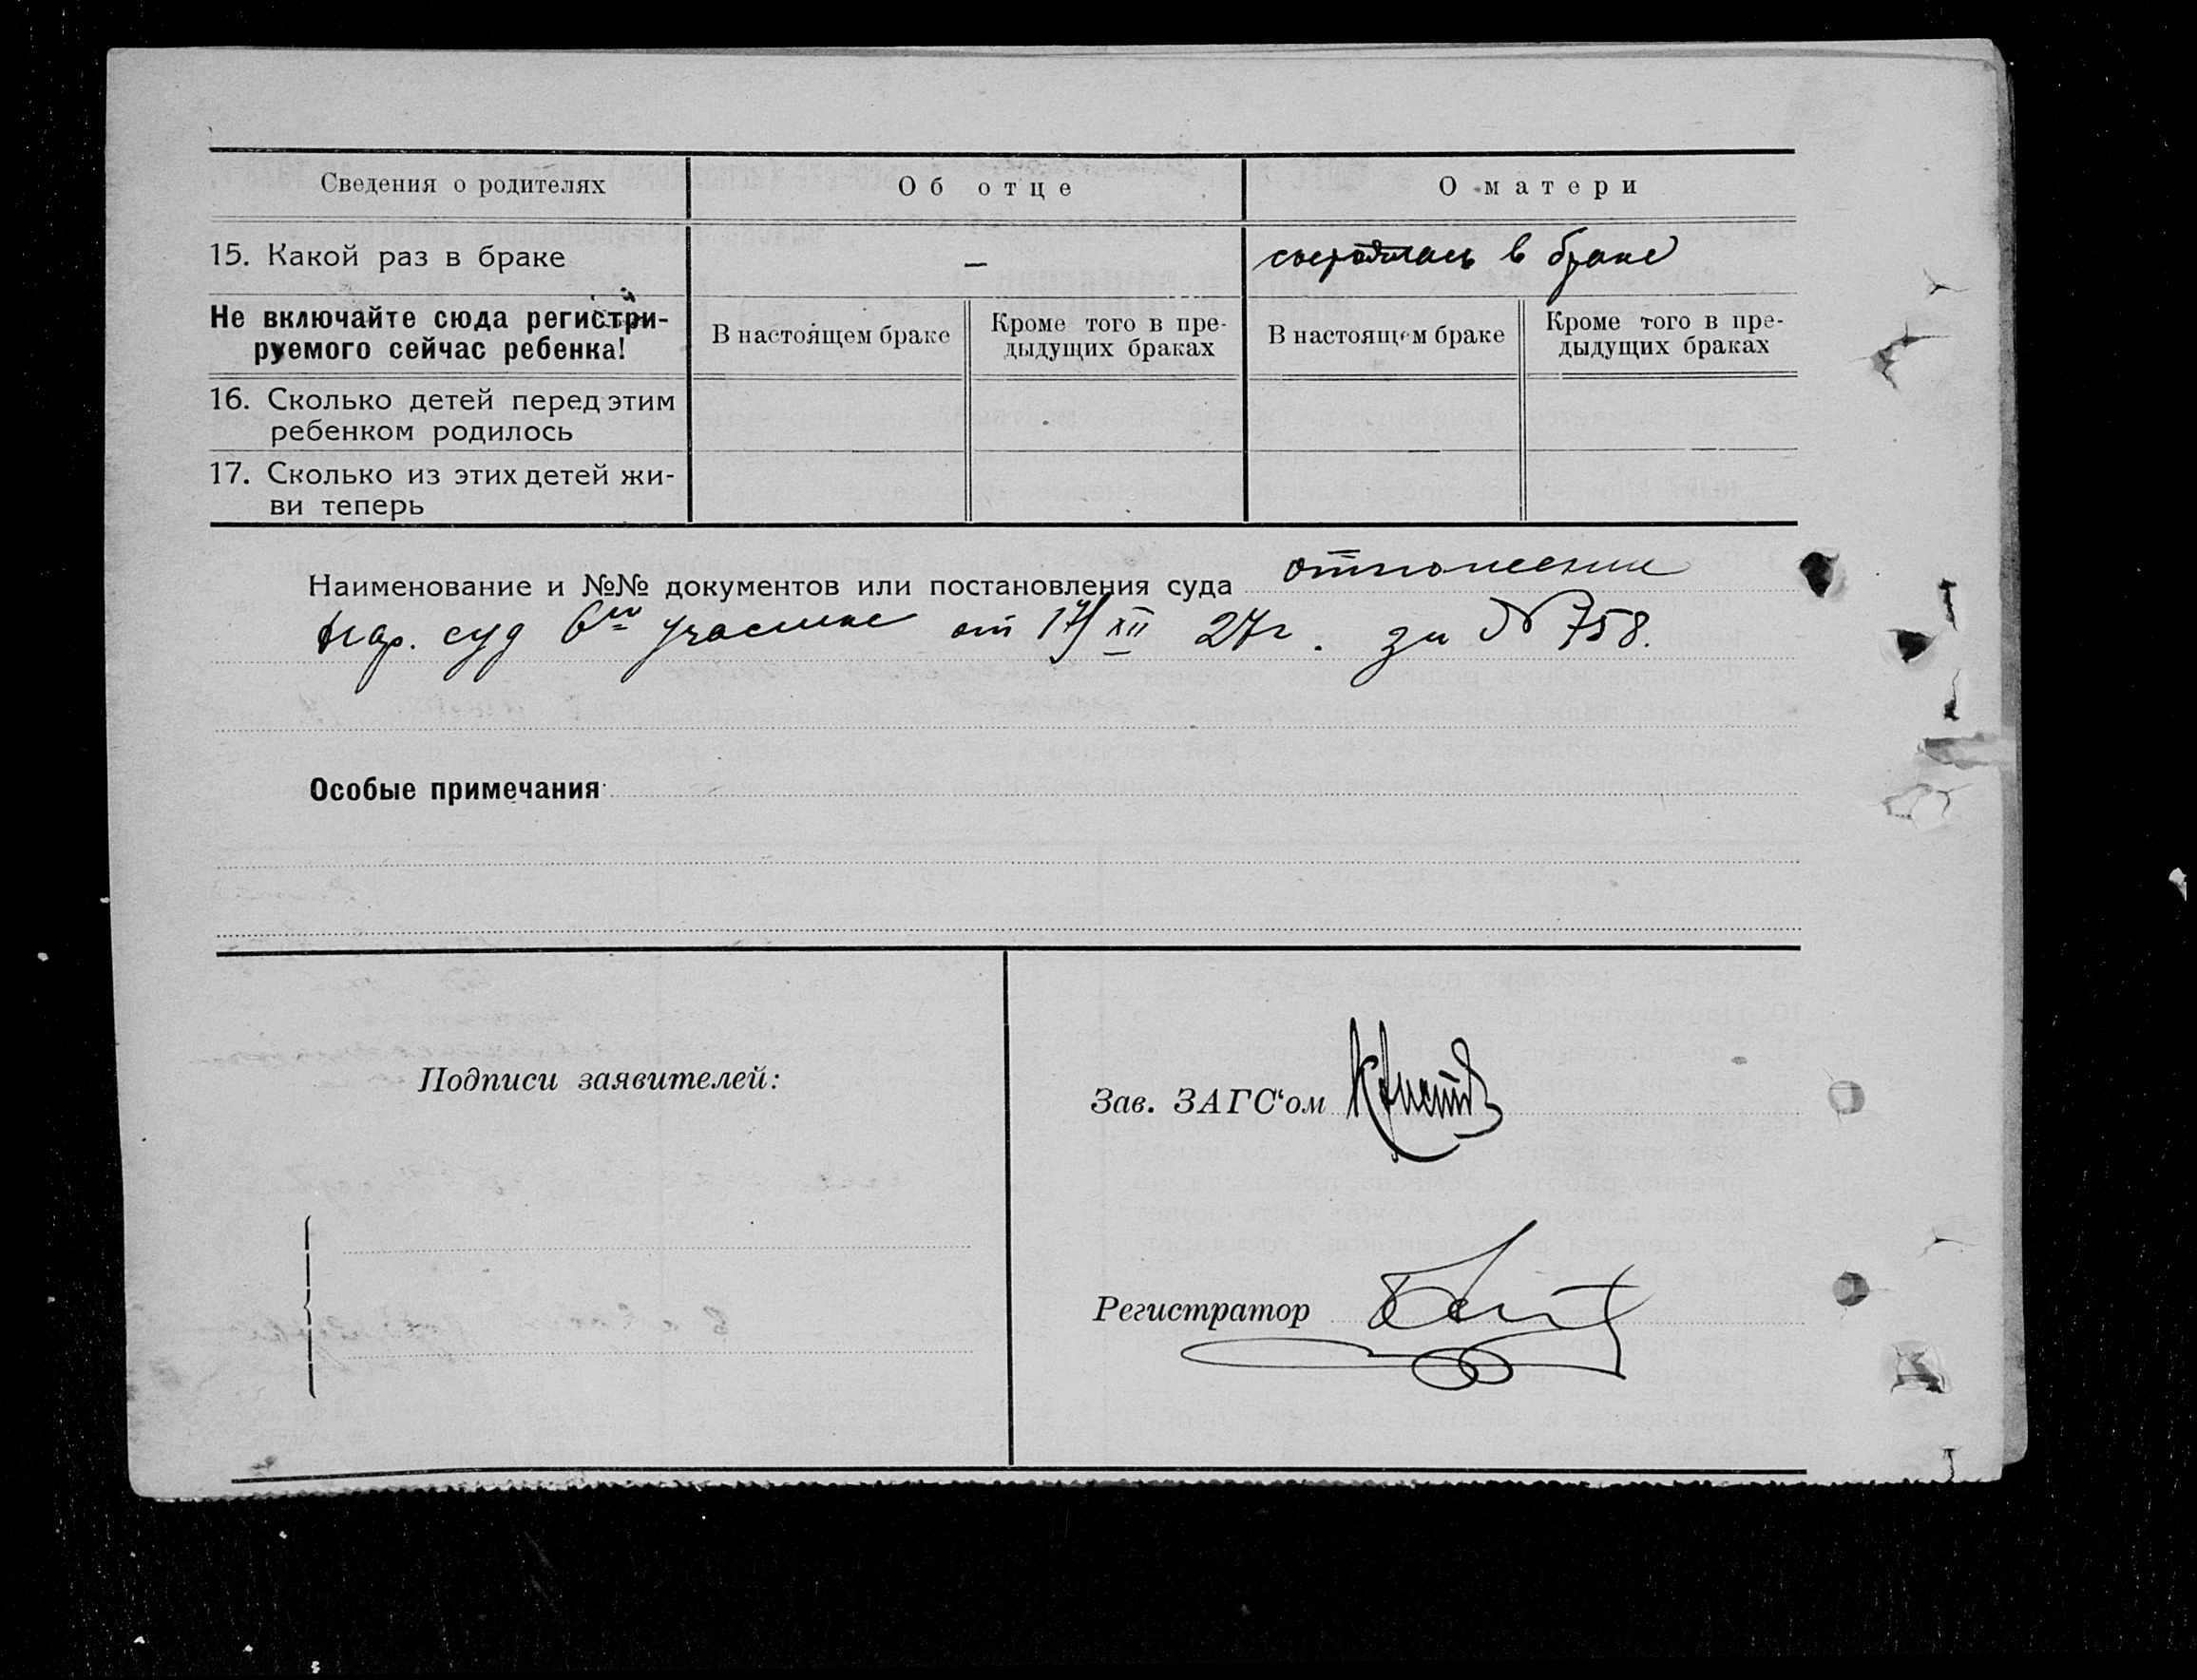 Сведения о родителях
Об отце
О матери
15. Какой раз в браке
—
в браке
Не включайте сюда регистри-
руемого сейчас ребенка!
В настоящем браке
Кроме того в пре-
дыдущих браках
В настоящем браке
Кроме того в пре-
дыдущих браках
16. Сколько детей перед этим
ребенком родилось
17. Сколько из этих детей жи-
ви теперь
Наименование и №№ документов или постановления суда отношение
Нар. суд 6го участка от 17/XII 27г. за № 758.
Особые примечания
Подписи заявителей:
Зав. ЗАГС‘ом
Регистратор